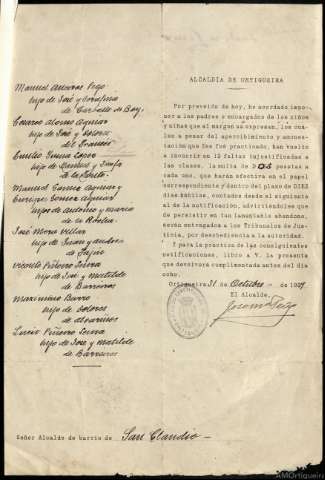 Manuel Anceiros Fego
hijo de José y Serafina
de Carballo da Bay.
Cesareo Alonso Aguiar
hijo de José y Dolores
del
Emilio
hijo de y
de la
Manuel Gomez Aguiar y
Enrique Gomez Aguiar
hijo de Antonio y Maria
de la
José Mora Villar
hijo de Juan y Andrea
de
Vicente Piñeiro Serra
hijo de José y Matilde
de Barreiros
Maximino Barro
hijo de Dolores
de
Lucio Piñeiro Serra
hijo de José y Matilde
de Barreiros
ALCALDIA DE ORTIGUEIRA
Por proveido de hoy, he acordado impo-
ner a los padres o encargados de los niños
y niñas que al margen se expresan, los cua-
les a pesar del apercibimiento y amones-
tación que les fué practicado, han vuelto
a incurrir en 12 faltas injustificadas a
las clases, la multa de DOS pesetas a
cada uno, que harán efectiva en el papel
correspondiente y dentro del plazo de DIEZ
dias hábiles, contados desde el siguiente
al de la notificación, advirtiendoles que
de persistir en tan lamentable abandono,
serán entregados a los Tribunales de Jus-
ticia, por desobediencia a la autoridad.
I para la práctica de las consiguientes
notificaciones, libro a V. la presente
que devolverá cumplimentada antes del día
ocho.
Ortigueira 31 de Octubre - de 1927
El Alcalde,
Señor Alcalde de barrio de San Claudio -
AMOrtigueira